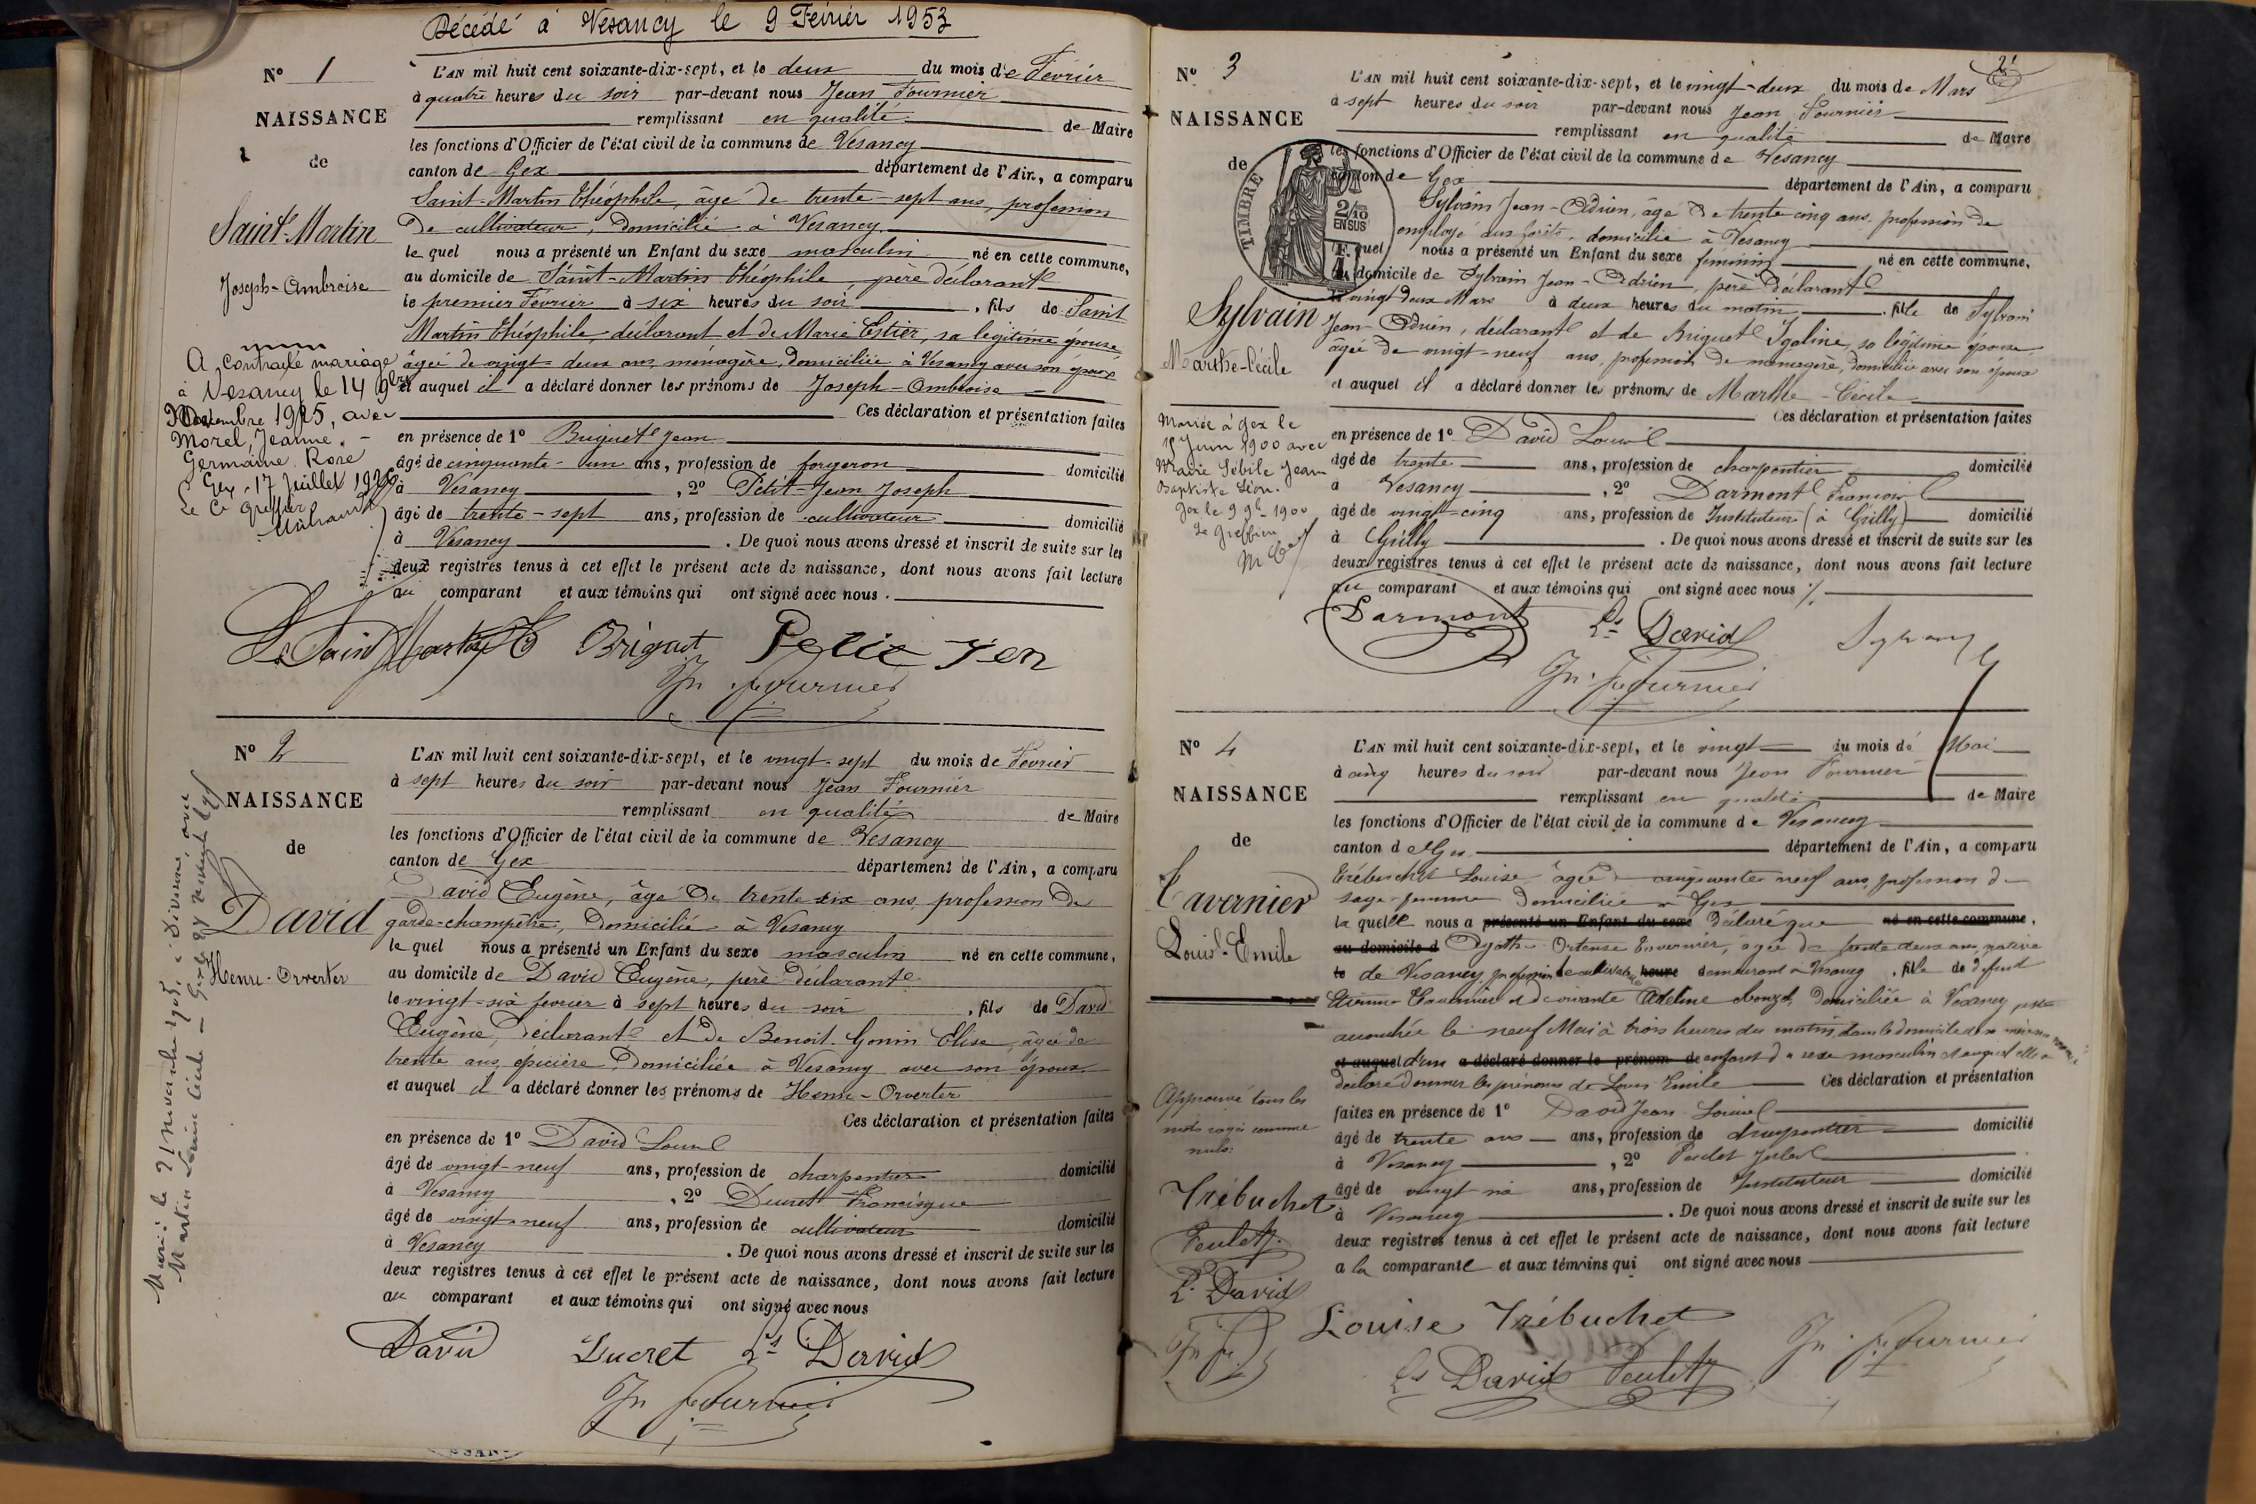 Décédé à Vesancy le 9 Février 1953
N° 1
NAISSANCE
de
Saint-Martin
Joseph-Ambroise
A contracté mariage
à Vesancy le 14 9bre
Novembre 1925, avec
Morel, Jeanne. -
Germaine Rose
Gex. 17 Juillet
Le Cs Greffier
L'AN mil huit cent soixante-dix-sept, et le deux du mois de Février
à quatre heures du soir par-devant nous Jean Fournier
remplissant en qualité de Maire
les fonctions d'Officier de l'état civil de la commune de Vesancy
canton de Gex département de l'Ain, a comparu
Saint-Martin Théophile, âgé de trente-sept ans, profession
De cultivateur, Domicilié à Vesancy
le quel nous a présenté un Enfant du sexe masculin né en cette commune,
au domicile de Saint-Martin Théophile, père déclarant
le premier Février à six heures du soir, fils de Saint
Martin Théophile, déclarant et de Marie Estier, sa légitime épouse
âgée de vingt-deux ans, ménagère, domiciliée à Vesancy avec son époux
et auquel il a déclaré donner les prénoms de Joseph-Ambroise
Ces déclaration et présentation faites
en présence de 1° Briguet Jean
âgé de cinquante-un ans, profession de forgeron domicilié
à Vesancy, 2° Petit-Jean Joseph
âgé de trente-sept ans, profession de cultivateur domicilié
à Vesancy. De quoi nous avons dressé et inscrit de suite sur les
deux registres tenus à cet effet le présent acte de naissance, dont nous avons fait lecture
au comparant et aux témoins qui ont signé avec nous.
St Martin Th Brigact Petit Jen
Jn Fournier
N° 2
NAISSANCE
de
David
Henri-Orverter
Marié le 21 novembre 1905, à Divonne, avec
Martin Louise
L'AN mil huit cent soixante-dix-sept, et le vingt-sept du mois de Février
à sept heures du soir par-devant nous Jean Fournier
remplissant en qualité de Maire
les fonctions d'Officier de l'état civil de la commune de Vesancy
canton de Gex département de l'Ain, a comparu
David Eugène, âgé De trente-six ans, profession De
garde-champêtre, Domicilié à Vesancy
le quel nous a présenté un Enfant du sexe masculin né en cette commune,
au domicile de David Eugène, père Déclarant
le vingt-six février à sept heures du soir, fils de David
Eugène, Déclarant et De Benoit-Gonin Elise, âgée de
trente ans, épicière, Domiciliée à Vesancy avec son époux
et auquel il a déclaré donner les prénoms de Henri-Orverter
Ces déclaration et présentation faites
en présence de 1° David Louis
âgé de vingt-neuf ans, profession de charpentier domicilié
à Vesancy, 2° Ducret Francisque
âgé de vingt-neuf ans, profession de cultivateur domicilié
à Vesancy. De quoi nous avons dressé et inscrit de suite sur les
deux registres tenus à cet effet le présent acte de naissance, dont nous avons fait lecture
au comparant et aux témoins qui ont signé avec nous
David Ducret Ls David
Jn Fournier
2
N° 3
NAISSANCE
de
TIMBRE
2/10 EN SUS
Sylvain
Marthe-Cécile
Mariée à Gex le
Juin 1900 avec
Marie Sébile Jean
Baptiste Léon.
Gex le 9 9bre 1900
Le Greffier
L'AN mil huit cent soixante-dix-sept, et le vingt-deux du mois de Mars
à sept heures du soir par-devant nous Jean Fournier
remplissant en qualité de Maire
les fonctions d'Officier de l'état civil de la commune de Vesancy
canton de Gex département de l'Ain, a comparu
Sylvain Jean-Adrien, âgé De trente-cinq ans, profession de
employé aux forêts, domicilié à Vesancy
le quel nous a présenté un Enfant du sexe féminin né en cette commune,
au domicile de Sylvain Jean-Adrien, père Déclarant
le vingt deux Mars à deux heures du matin, fille de Sylvain
Jean-Adrien, déclarant et de Briguet Igoline, sa légitime épouse
âgée de vingt-neuf ans, profession de ménagère, domiciliée avec son époux
et auquel il a déclaré donner les prénoms de Marthe-Cécile
Ces déclaration et présentation faites
en présence de 1° David Louis
âgé de trente ans, profession de charpentier domicilié
à Vesancy, 2° Darmont François
âgé de vingt-cinq ans, profession de Instituteur (à Grilly) domicilié
à Grilly. De quoi nous avons dressé et inscrit de suite sur les
deux registres tenus à cet effet le présent acte de naissance, dont nous avons fait lecture
au comparant et aux témoins qui ont signé avec nous
Darmont Ls David Sylvain
Jn Fournier
N° 4
NAISSANCE
de
Tavernier
Louis-Emile
Approuvé tous les
mots rayés comme
nuls:
Trébuchet
Peulet
Ls David
Jn F
L'AN mil huit cent soixante-dix-sept, et le vingt du mois de Mai
à cinq heures du soir par-devant nous Jean Fournier
remplissant en qualité de Maire
les fonctions d'Officier de l'état civil de la commune de Vesancy
canton de Gex département de l'Ain, a comparu
Trébuchet Louise âgée cinquante neuf ans, profession de
sage-femme domiciliée à Gex
la quelle nous a présenté un Enfant du sexe déclaré que né en cette commune,
au domicile d Ortense Tavernier, âgée de trente deux ans, native
le de Vesancy, profession de cultivatrice heure demeurant à Vesancy, fille de défunt
Etienne Tavernier et de vivante Adeline, Domiciliée à Vesancy, est
accouchée le neuf Mai à trois heures du matin, dans le domicile de sa mère
et auquel d'un a déclaré donner le prénom de enfant du sexe masculin et auquel elle a
déclaré donner les prénoms de Louis Emile Ces déclaration et présentation
faites en présence de 1° David Jean Louis
âgé de trente ans ans, profession de charpentier domicilié
à Vesancy, 2° Peulet Jules
âgé de vingt six ans, profession de Instituteur domicilié
à Vesancy. De quoi nous avons dressé et inscrit de suite sur les
deux registres tenus à cet effet le présent acte de naissance, dont nous avons fait lecture
a la comparante et aux témoins qui ont signé avec nous
Louise Trébuchet
Ls David Peulet Jn Fournier